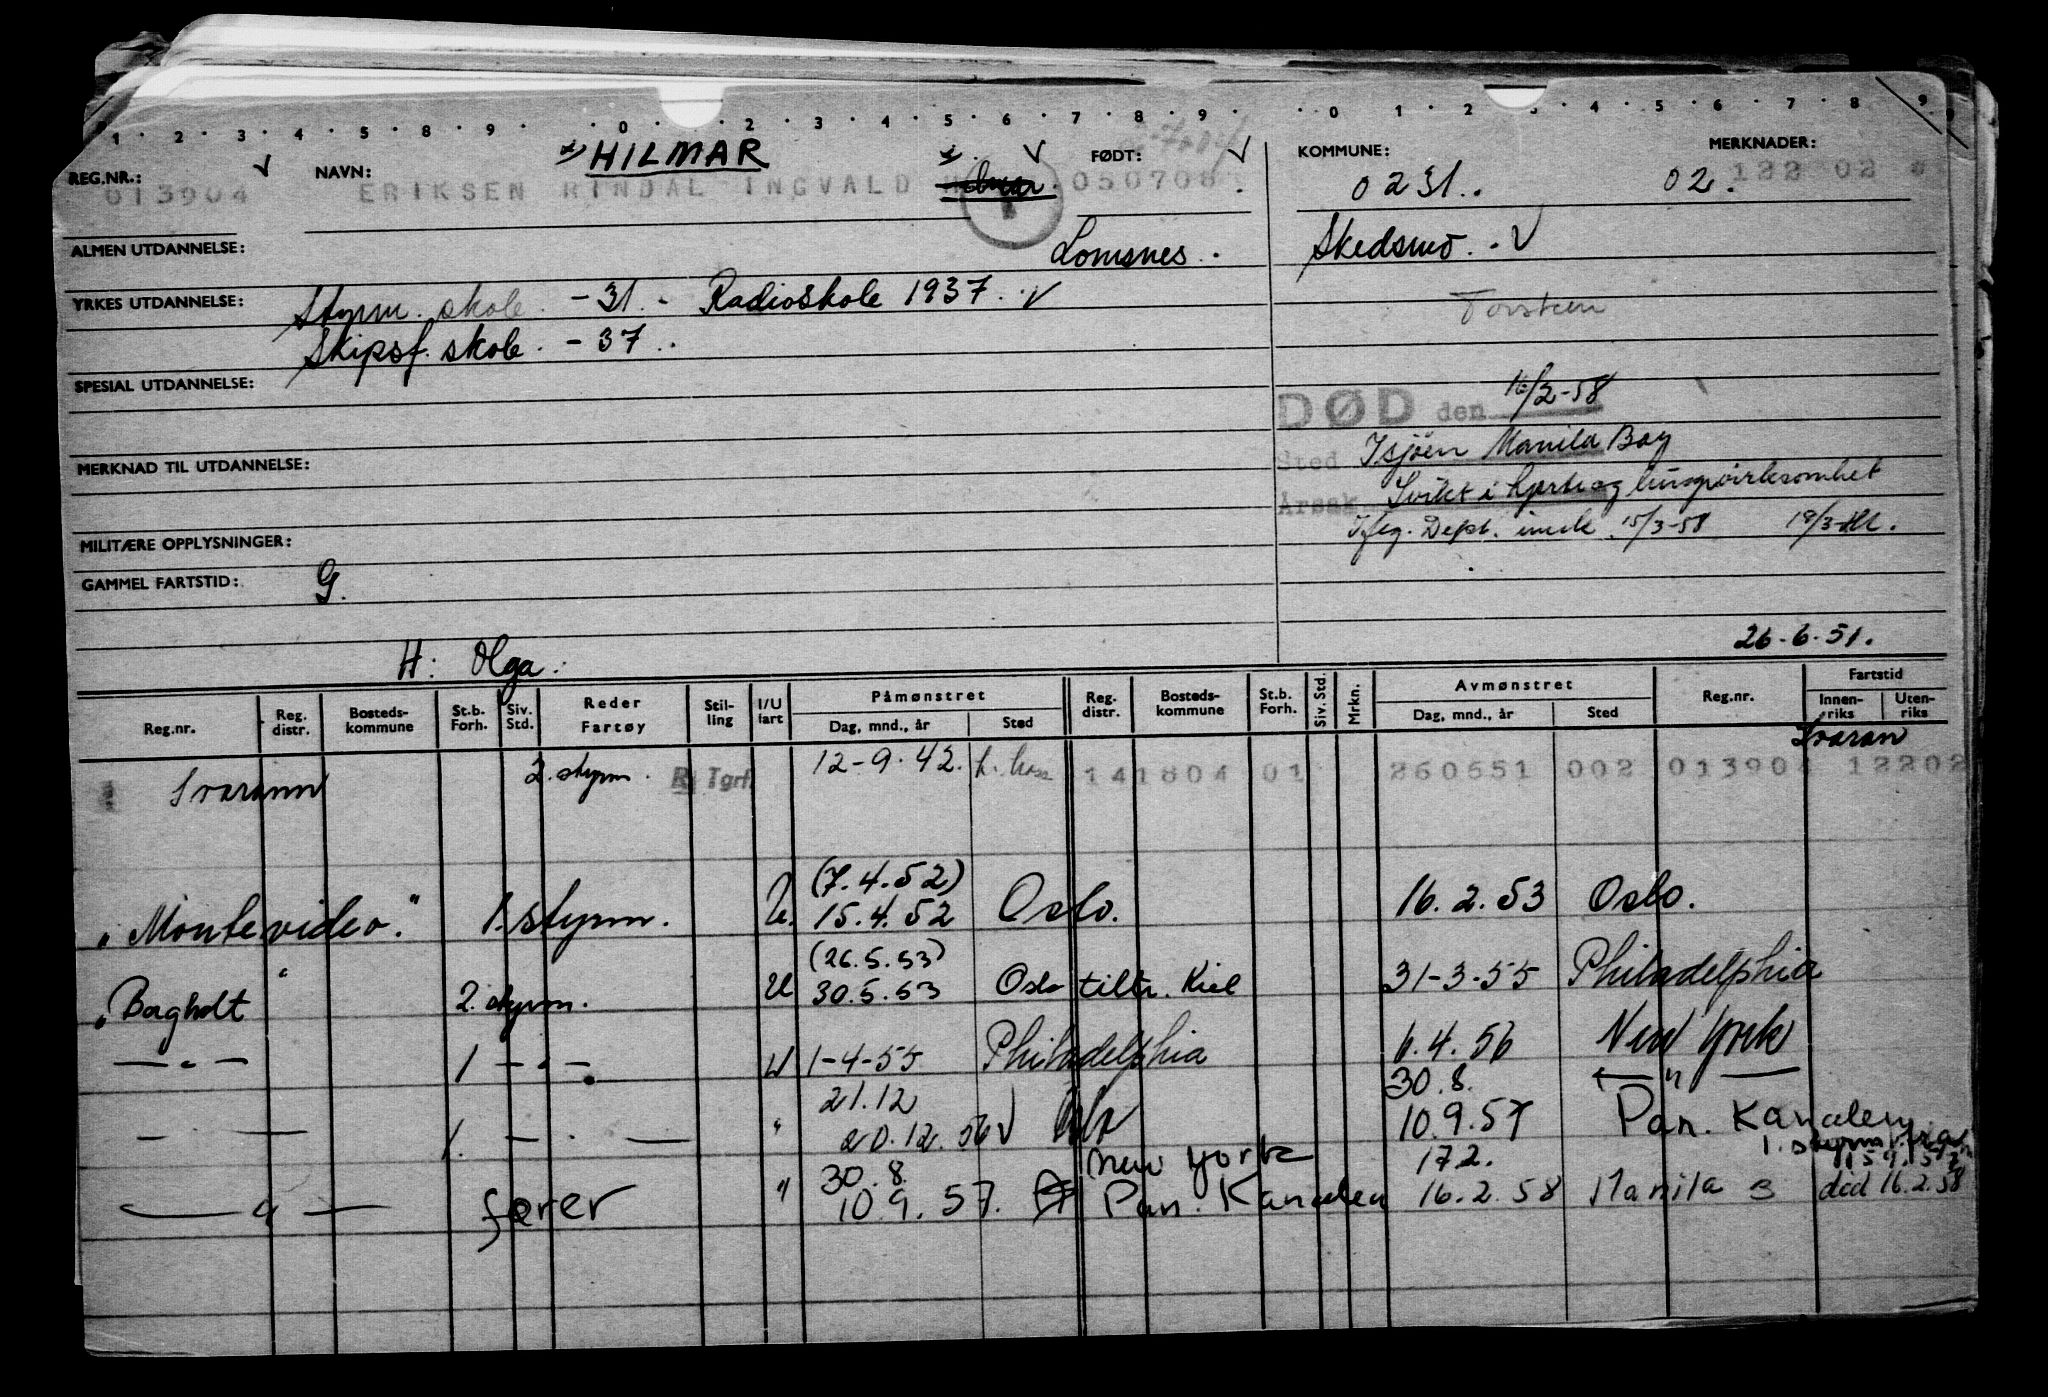 1 2 3 4 5 8 9 0 2 3 4 5 6 7 8 9 0 1 2 4 5 6 7 8 9
REG.NR.: NAVN: x) HILMAR x. V FØDT: V KOMMUNE: MERKNADER:
013904 ERIKSEN RINDAL INGVALD 050708 0231. 02. 122 02
ALMEN UTDANNELSE: Lomsnes. Skedsmo. V
YRKES UTDANNELSE: Styrm. skole - 31. - Radioskole 1937. V Torsteen
Skipsf. skole. - 37.
SPESIAL UTDANNELSE:
DØD den 16/2-58
MERKNAD TIL UTDANNELSE: Sted I sjøen Manila Bay
Årsak Svikt i hjerte og lungevirksomhet
MILITÆRE OPPLYSNINGER: Dept. 15/3-58 19/3
GAMMEL FARTSTID: G.
H: Olga. 26-6-51.
Reg.nr. Reg. distr. Bosteds-kommune St.b. Forh. Siv. Std. Reder Fartøy Stil-ling I/U fart Påmønstret Dag, mnd., år Sted Reg. distr. Bosteds-kommune St.b. Forh. Siv. Std. Mrkn. Avmønstret Dag, mnd., år Sted Reg.nr. Fartstid Innen-riks Uten-riks
Svarann 2. styrm. R Tgrf 12-9-42. 141804 01 260651 002 013904 12202 Svaran
(7.4.52)
"Montevideo." 1. styrm. U. 15.4.52 Oslo. 16.2.53 Oslo.
(26.5.53)
"Bagholt" 2. styrm. U 30.5.53 Oslo tiltr. Kiel 31-3-55 Philadelphia
— " — 1 — " — U 1-4-55 Philadelphia 6.4.56 New York
21.12 30.8. — " —
— " — 1. — " — " 20.12.56 V Oslo 10.9.57 Pan. Kanalen
30.8. New York 17.2. 1. styrm.
— " — fører " 10.9.57. Pan. Kanalen 16.2.58 Manila 3 død 16.2.58